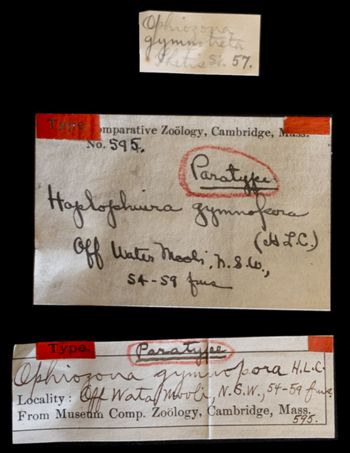 Ophiozona
gymnotreta
Thetis St. 57.
Type. Comparative Zoölogy, Cambridge, Mass.
No. 595.
Paratype
Haplophiura gymnopora
(H L C)
Off Water Mooli, N.S.W.,
54-59 fms
Type. Paratype
Ophiozona gymnopora H.L.C.
Locality: Off Wata Mooli, N.S.W., 54-59 fms.
From Museum Comp. Zoölogy, Cambridge, Mass.
595.